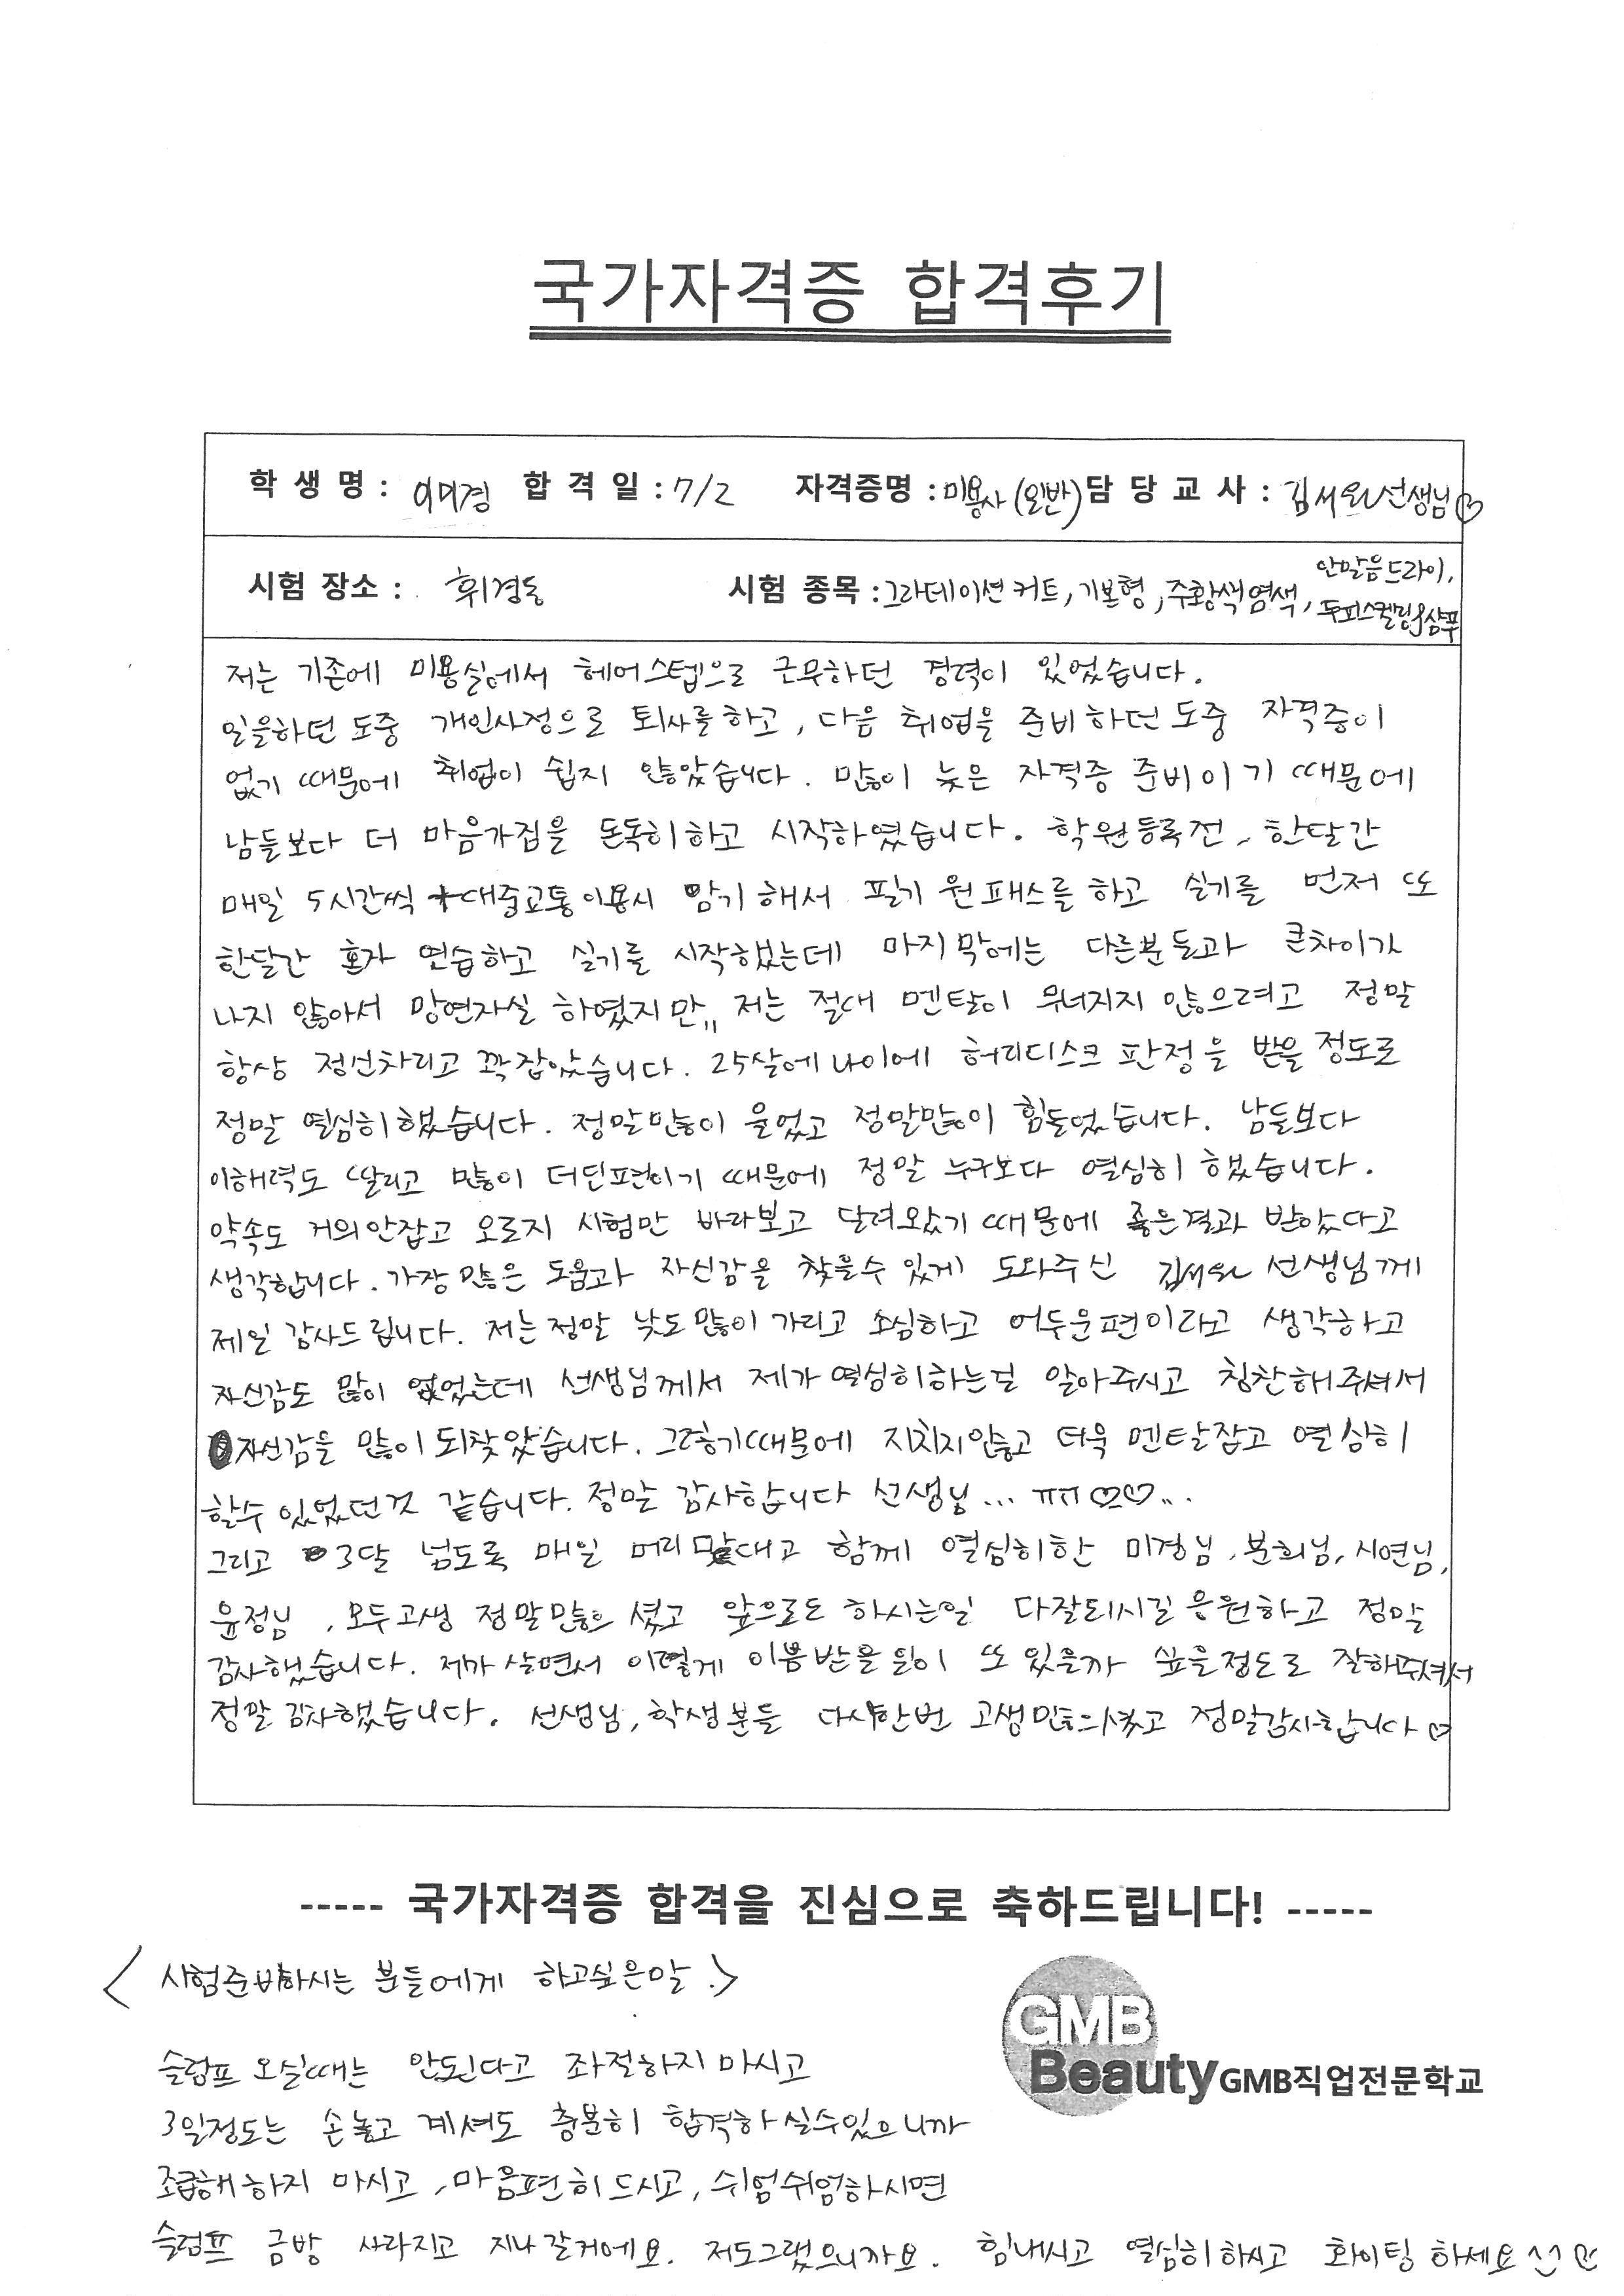 국가자격증 합격후기
학 생 명 : 이미경 합 격 일 : 7/2 자격증명 : 미용사(일반) 담 당 교 사 : 김서원 선생님♡
시험 장소 : 휘경동 시험 종목 : 그라데이션 커트, 기본형, 주황색 염색, 안말음드라이, 두피스켈링&샴푸
저는 기존에 미용실에서 헤어스텝으로 근무하던 경력이 있었습니다.
일을하던 도중 개인사정으로 퇴사를하고, 다음 취업을 준비하던 도중 자격증이
없기 때문에 취업이 쉽지 않았습니다. 많이 늦은 자격증 준비이기 때문에
남들보다 더 마음가짐을 돈독히하고 시작하였습니다. 학원등록전, 한달간
매일 5시간씩 +대중교통이용시 암기해서 필기 원패스를 하고 실기를 먼저 또
한달간 혼자 연습하고 실기를 시작했는데 마지막에는 다른분들과 큰차이가
나지 않아서 망연자실 하였지만,, 저는 절대 멘탈이 무너지지 않으려고 정말
항상 정신차리고 꽉잡았습니다. 25살에나이에 허리디스크 판정을 받을 정도로
정말 열심히했습니다. 정말많이 울었고 정말많이 힘들었습니다. 남들보다
이해력도 딸리고 많이 더딘편이기 때문에 정말 누구보다 열심히 했습니다.
약속도 거의안잡고 오로지 시험만 바라보고 달려왔기 때문에 좋은결과 받았다고
생각합니다. 가장 많은 도움과 자신감을 찾을수 있게 도와주신 김서원 선생님께
제일 감사드립니다. 저는정말 낯도많이 가리고 소심하고 어두운편이라고 생각하고
자신감도 많이 없었는데 선생님께서 제가 열심히하는걸 알아주시고 칭찬해주셔서
자신감을 많이 되찾았습니다. 그렇기때문에 지치지않고 더욱 멘탈잡고 열심히
할수 있었던것 같습니다. 정말 감사합니다 선생님... ㅠㅠ♡♡...
그리고 3달 넘도록 매일 머리 맞대고 함께 열심히한 미경님, 분희님, 시연님,
윤정님, 모두고생 정말많으셨고 앞으로도 하시는일 다잘되시길 응원하고 정말
감사했습니다. 제가 살면서 이렇게 이쁨받을 일이 또 있을까 싶을정도로 잘해주셔서
정말 감사했습니다. 선생님, 학생분들 다시한번 고생많으셨고 정말감사합니다♡
----- 국가자격증 합격을 진심으로 축하드립니다! -----
<시험준비하시는 분들에게 하고싶은말.>
GMB
Beauty GMB직업전문학교
슬럼프 오실때는 안된다고 좌절하지 마시고
3일정도는 손놓고 계셔도 충분히 합격하실수있으니까
조급해하지 마시고, 마음편히드시고, 쉬엄쉬엄하시면
슬럼프 금방 사라지고 지나갈거에요. 저도그랬으니까요. 힘내시고 열심히하시고 화이팅 하세요 ♡